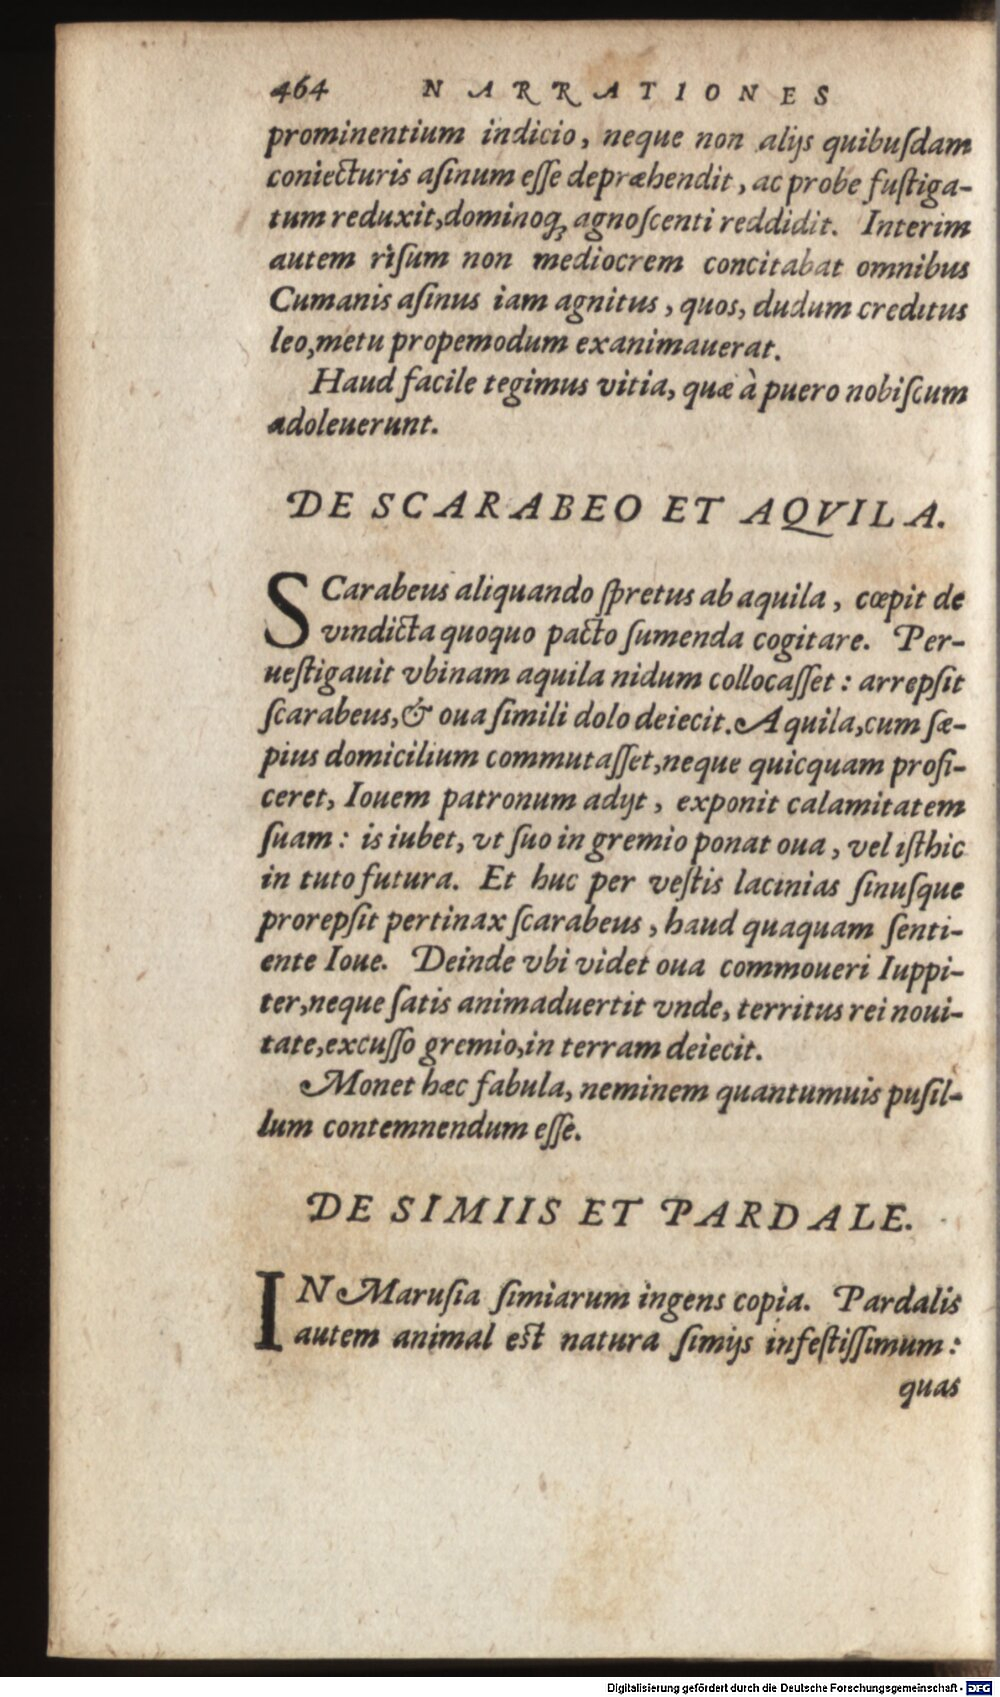 464 NARRATIONES
prominentium indicio, neque non alijs quibuſdam
coniecturis aſinum eſſe depræhendit, ac probe fuſtiga-
tum reduxit, dominoq; agnoſcenti reddidit. Interim
autem riſum non mediocrem concitabat omnibus
Cumanis aſinus iam agnitus, quos, dudum creditus
leo, metu propemodum exanimauerat.
Haud facile tegimus vitia, quæ à puero nobiſcum
adoleuerunt.
DE SCARABEO ET AQVILA.
SCarabeus aliquando ſpretus ab aquila, cœpit de
vindicta quoquo pacto ſumenda cogitare. Per-
ueſtigauit vbinam aquila nidum collocaſſet: arrepſit
ſcarabeus, & oua ſimili dolo deiecit. Aquila, cum ſæ-
pius domicilium commutaſſet, neque quicquam profi-
ceret, Iouem patronum adijt, exponit calamitatem
ſuam: is iubet, vt ſuo in gremio ponat oua, vel iſthic
in tuto futura. Et huc per veſtis lacinias ſinuſque
prorepſit pertinax ſcarabeus, haud quaquam ſenti-
ente Ioue. Deinde vbi videt oua commoueri Iuppi-
ter, neque ſatis animaduertit vnde, territus rei noui-
tate, excuſſo gremio, in terram deiecit.
Monet hæc fabula, neminem quantumuis puſil-
lum contemnendum eſſe.
DE SIMIIS ET PARDALE.
IN Maruſia ſimiarum ingens copia. Pardalis
autem animal eſt natura ſimijs infeſtiſſimum:
quas
Digitalisierung gefördert durch die Deutsche Forschungsgemeinschaft - DFG